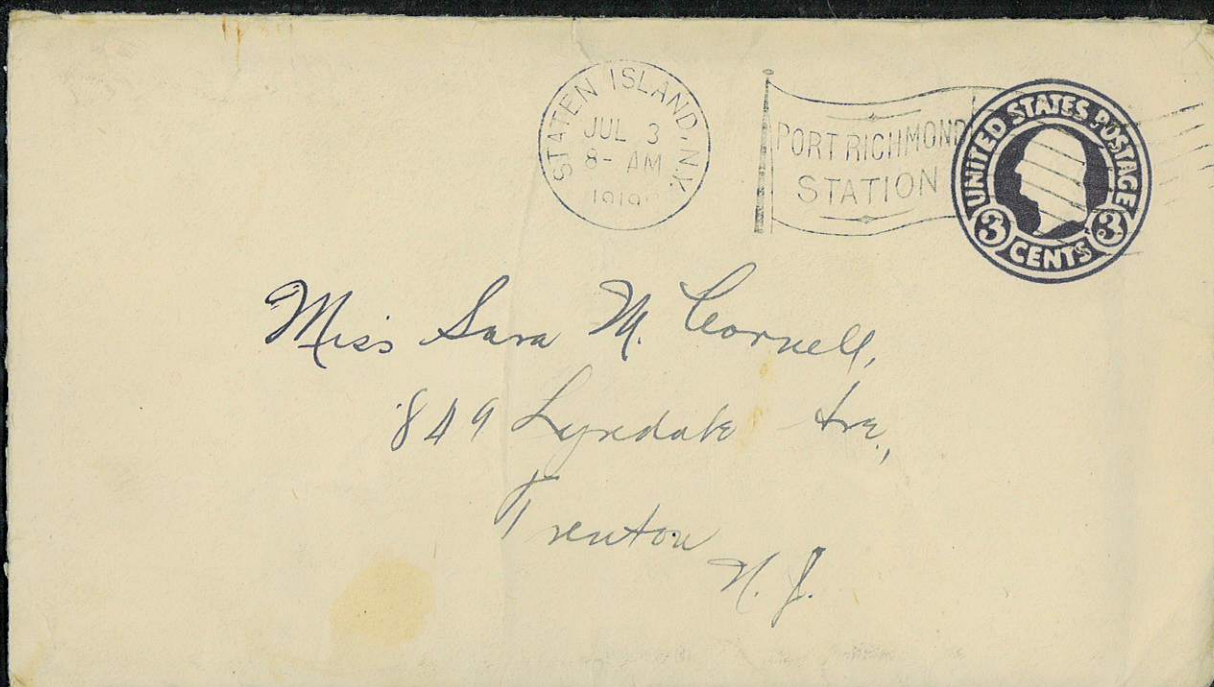 STATEN ISLAND, N.Y.
JUL 3
8- AM
1919
PORT RICHMOND
STATION
UNITED STATES POSTAGE
3 CENTS 3
Miss Sara M. Cornell,
849 Lyndale Ave.,
Trenton
N. J.